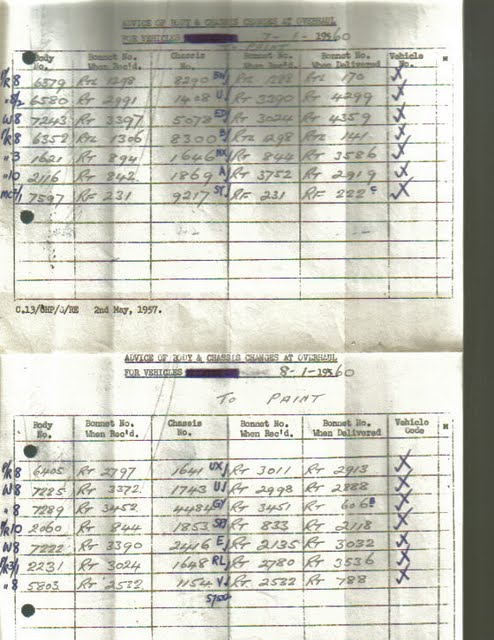 ADVICE OF BODY & CHASSIS CHANGES AT OVERHAUL
FOR VEHICLES 7-1-1960
TO PAINT
Body No. Bonnet No. When Rec'd. Chassis No. Bonnet No. When Rec'd. Bonnet No. When Delivered Vehicle No.
8 6579 RTL 1298 8290 RTL 1288 RTL 170 X
6580 RT 2991 1408 U RT 3290 RT 4299 X
W8 7243 RT 3397 5078 ED RT 3024 RT 4359 X
8 6352 RTL 1306 8300 B RTL 1298 RTL 141 X
" 3 1621 RT 894 1646 NX RT 844 RT 3586 X
" 10 2116 RT 842 1869 A RT 3752 RT 2919 X
7597 RF 231 9217 SY RF 231 RF 222 c X
C.13/8HP/G/RE 2nd May, 1957.
ADVICE OF BODY & CHASSIS CHANGES AT OVERHAUL
FOR VEHICLES 8-1-1960
TO PAINT
Body No. Bonnet No. When Rec'd. Chassis No. Bonnet No. When Rec'd. Bonnet No. When Delivered Vehicle Code
8 6405 RT 2797 1641 UX RT 3011 RT 2913 X
W8 7225 RT 3372 1743 UJ RT 2998 RT 2888 X
" 8 7289 RT 3452 4484 GY RT 3451 RT 606 B X
10 2060 RT 844 1853 SD RT 833 RT 2118 X
W8 7222 RT 3390 2416 E RT 2135 RT 3032 X
2231 RT 3024 1648 RL RT 2780 RT 3536 X
" 8 5803 RT 2532 1154 V RT 2532 RT 788 X